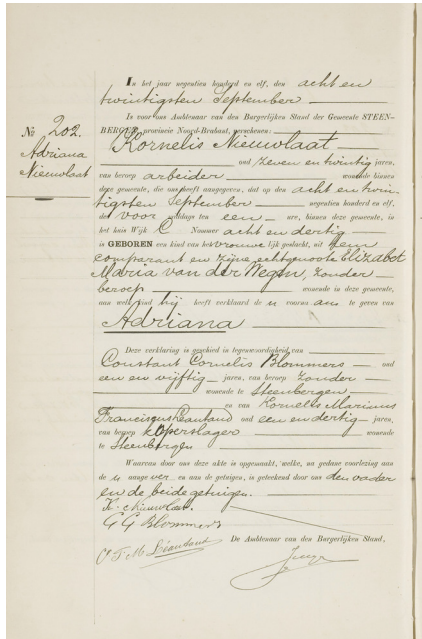 No 202.
Adriana
Nieuwlaat
In het jaar negentien honderd en elf, den acht en
twintigsten September
Is voor ons Ambtenaar van den Burgerlijken Stand der Gemeente STEEN-
BERGEN, provincie Noord-Brabant, verschenen:
Kornelis Nieuwlaat
oud zeven en twintig jaren,
van beroep arbeider wonende binnen
deze gemeente, die ons heeft aangegeven, dat op den acht en twin-
tigsten September negentien honderd en elf,
des voor middags ten een ure, binnen deze gemeente, in
het huis Wijk C Nommer acht en dertig
is GEBOREN een kind van het vrouwelijk geslacht, uit hem
comparant en zijne echtgenoote Elizabet
Maria van der Wegen, zonder
beroep wonende in deze gemeente,
aan welk kind hij heeft verklaard de voornaam te geven van
Adriana
Deze verklaring is geschied in tegenwoordigheid van
Constant Cornelis Blommers oud
een en vijftig jaren, van beroep zonder
wonende te Steenbergen
en van Kornelis Marinus
Franciscus Léantand oud een en dertig jaren,
van beroep koperslager wonende
te Steenbergen
Waarvan door ons deze akte is opgemaakt, welke, na gedane voorlezing aan
de aangever en aan de getuigen, is geteekend door ons den vader
en de beide getuigen.
K. Nieuwlaat.
C C Blommers
Léantand
De Ambtenaar van den Burgerlijken Stand,